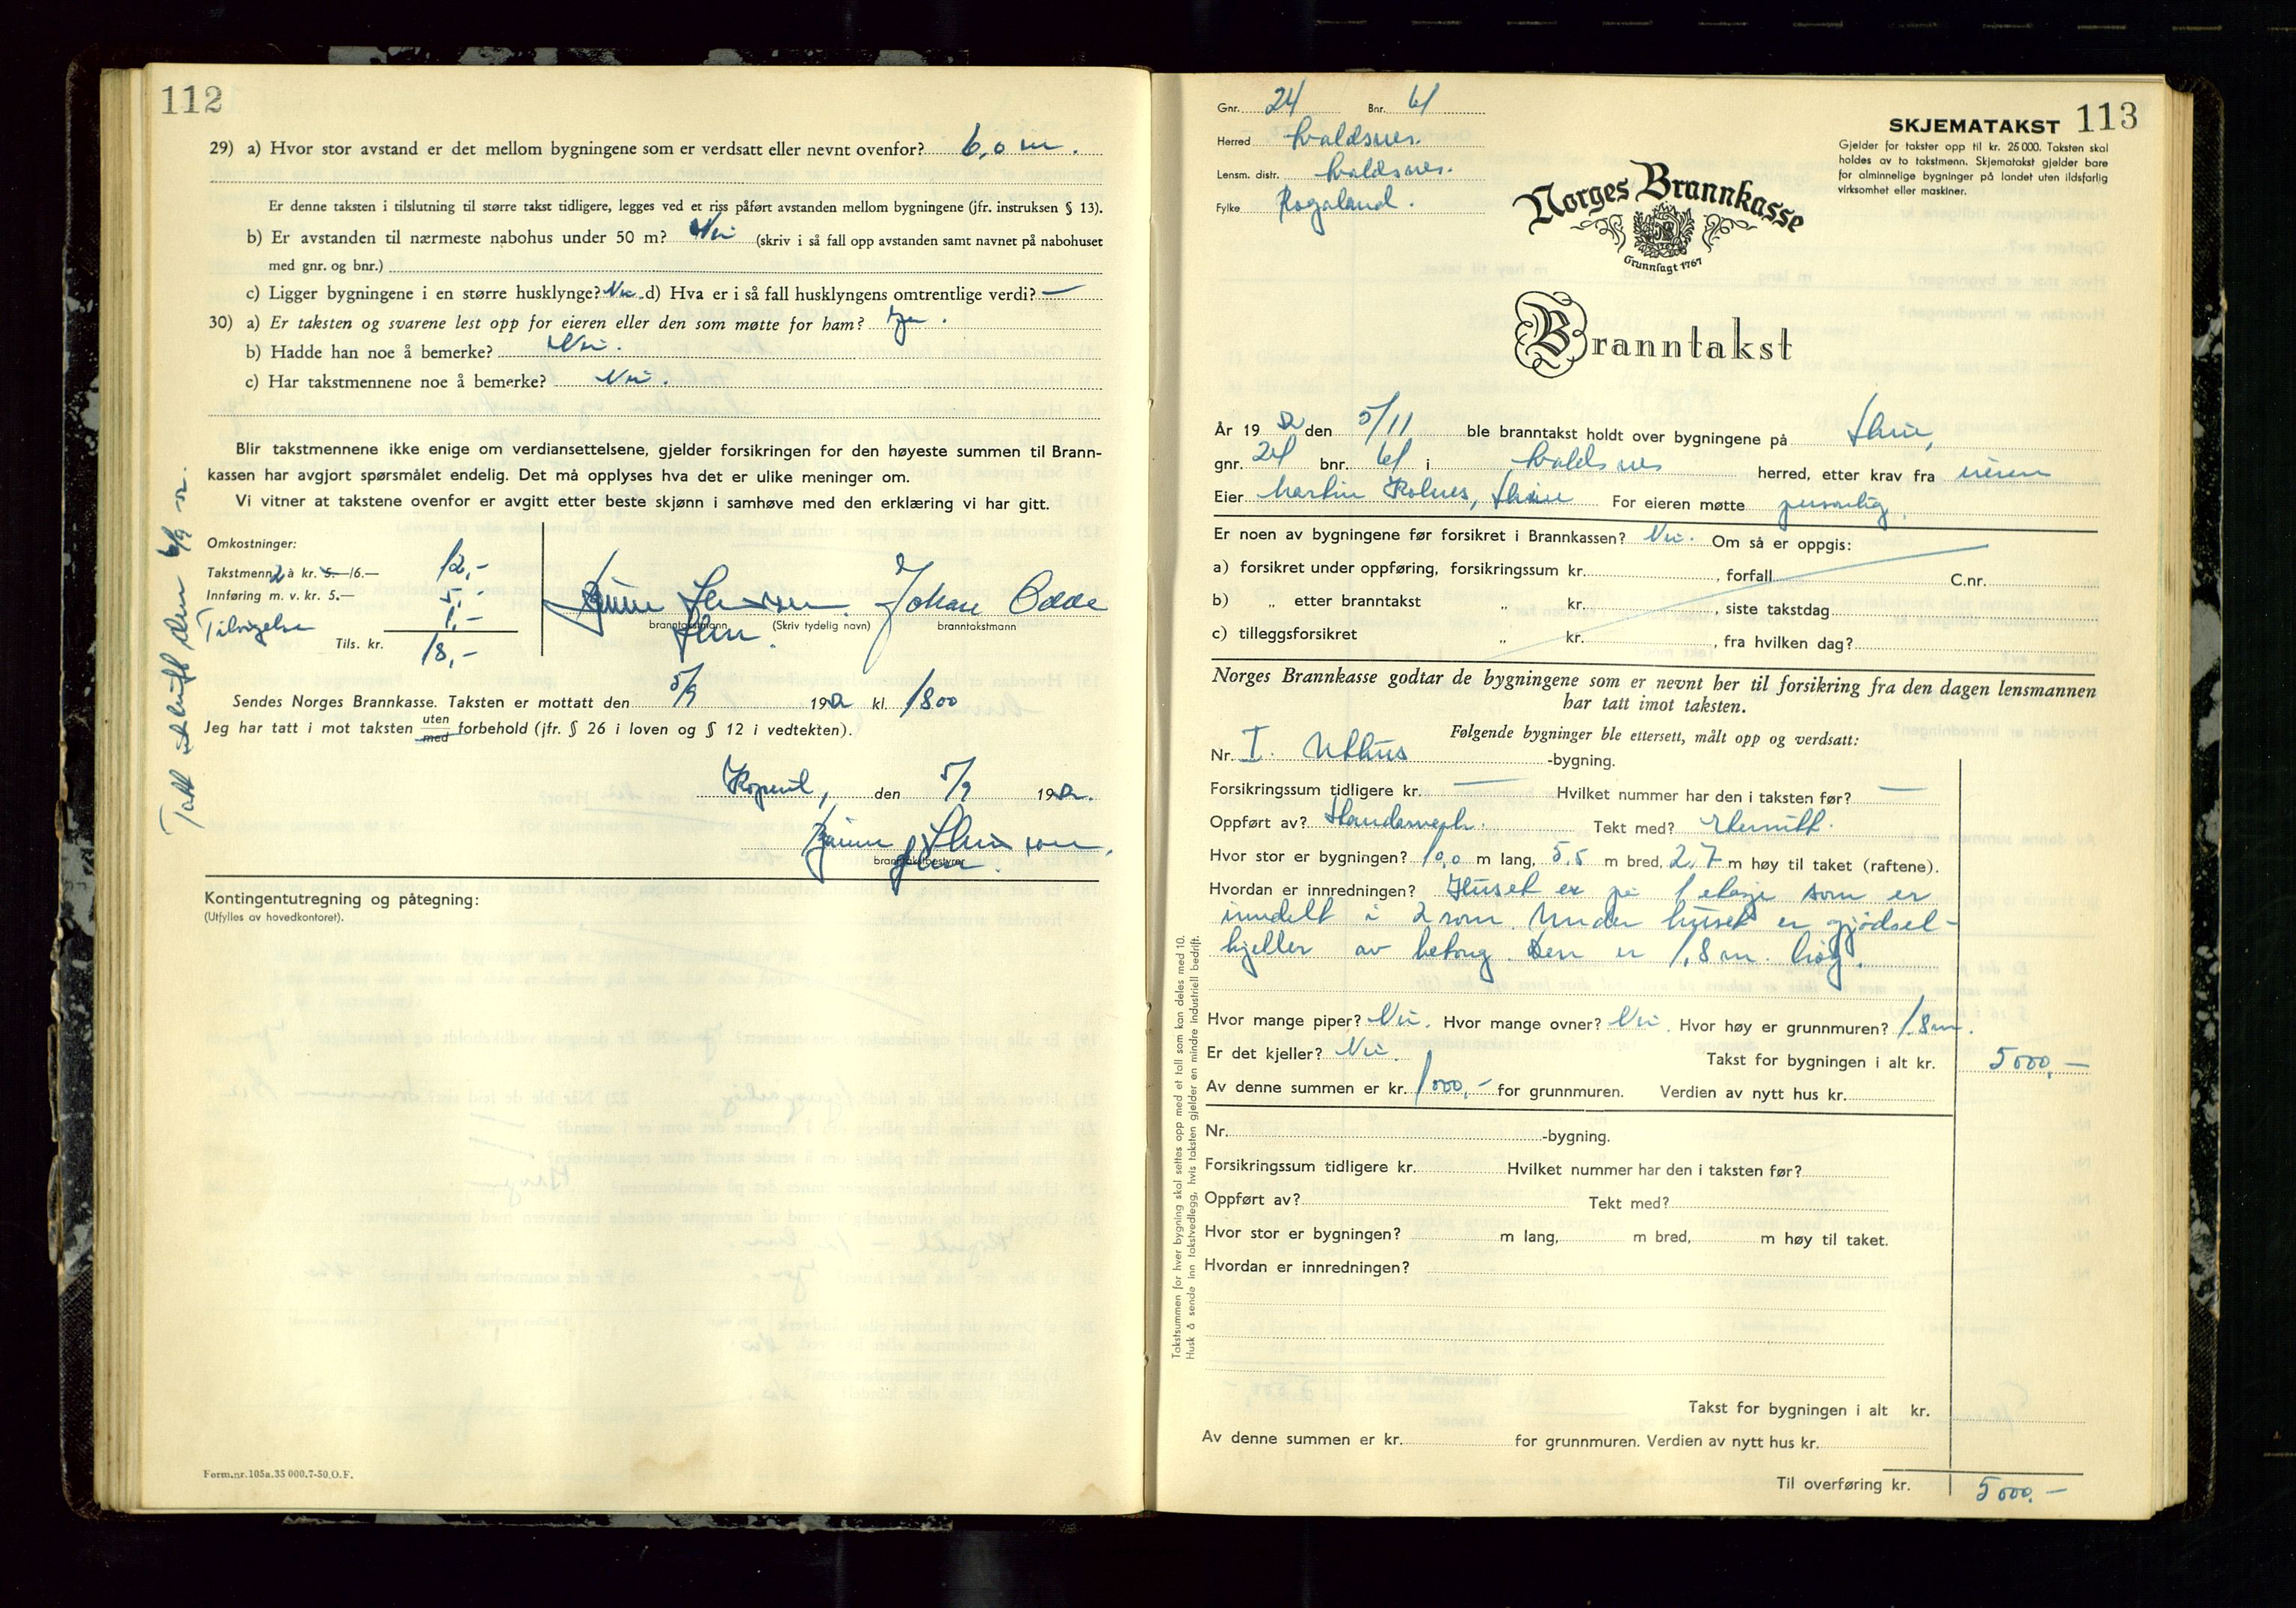 112
29) a) Hvor stor avstand er det mellom bygningene som er verdsatt eller nevnt ovenfor? 6,0 m.
Er denne taksten i tilslutning til større takst tidligere, legges ved et riss påført avstanden mellom bygningene (jfr. instruksen § 13).
b) Er avstanden til nærmeste nabohus under 50 m? Nei (skriv i så fall opp avstanden samt navnet på nabohuset
med gnr. og bnr.)
c) Ligger bygningene i en større husklynge? Nei d) Hva er i så fall husklyngens omtrentlige verdi? —
30) a) Er taksten og svarene lest opp for eieren eller den som møtte for ham? Ja.
b) Hadde han noe å bemerke? Nei.
c) Har takstmennene noe å bemerke? Nei.
Blir takstmennene ikke enige om verdiansettelsene, gjelder forsikringen for den høyeste summen til Brann-
kassen har avgjort spørsmålet endelig. Det må opplyses hva det er ulike meninger om.
Vi vitner at takstene ovenfor er avgitt etter beste skjønn i samhøve med den erklæring vi har gitt.
Omkostninger:
Takstmenn 2 à kr. 5.—/6.— 12,-
Innføring m. v. kr. 5.— 5,-
1,-
Tils. kr. 18,-
Johan Odde
branntakstmann (Skriv tydelig navn) branntakstmann
Sendes Norges Brannkasse. Taksten er mottatt den 5/9 1952 kl. 1800
Jeg har tatt i mot taksten uten med forbehold (jfr. § 26 i loven og § 12 i vedtekten).
Kopervik, den 5/9 1952.
branntakstbestyrer
Kontingentutregning og påtegning:
(Utfylles av hovedkontoret).
Form.nr.105a.35 000.7-50.O.F.
Tatt utskrift den 6/9 52.
Gnr. 24 Bnr. 61
Herred Avaldsnes.
Lensm. distr. Avaldsnes.
Fylke Rogaland.
SKJEMATAKST 113
Gjelder for takster opp til kr. 25 000. Taksten skal
holdes av to takstmenn. Skjematakst gjelder bare
for alminnelige bygninger på landet uten ildsfarlig
virksomhet eller maskiner.
Norges Brannkasse
Grunnlagt 1767
Branntakst
År 1952 den 5/11 ble branntakst holdt over bygningene på
gnr. 24 bnr. 61 i Avaldsnes herred, etter krav fra eieren
Eier Martin Kolnes, For eieren møtte personlig.
Er noen av bygningene før forsikret i Brannkassen? Nei. Om så er oppgis:
a) forsikret under oppføring, forsikringssum kr. , forfall C.nr.
b) „ etter branntakst „ kr. , siste takstdag
c) tilleggsforsikret „ kr. , fra hvilken dag?
Norges Brannkasse godtar de bygningene som er nevnt her til forsikring fra den dagen lensmannen
har tatt imot taksten.
Følgende bygninger ble ettersett, målt opp og verdsatt:
Nr. I. Uthus -bygning.
Forsikringssum tidligere kr. — Hvilket nummer har den i taksten før? —
Oppført av? Standerverk. Tekt med? Eternitt.
Hvor stor er bygningen? 10,0 m lang, 5,5 m bred, 2,7 m høy til taket (raftene).
Hvordan er innredningen? Huset er på 1 etasje som er
inndelt i 2 rom. Under huset er gjødsel-
kjeller av betong. Den er 1,8 m. høg.
Hvor mange piper? Nei. Hvor mange ovner? Nei. Hvor høy er grunnmuren? 1,8 m.
Er det kjeller? Nei. Takst for bygningen i alt kr. 5000,-
Av denne summen er kr. 1000,- for grunnmuren. Verdien av nytt hus kr.
Nr. -bygning.
Forsikringssum tidligere kr. Hvilket nummer har den i taksten før?
Oppført av? Tekt med?
Hvor stor er bygningen? m lang, m bred, m høy til taket.
Hvordan er innredningen?
Takst for bygningen i alt kr.
Av denne summen er kr. for grunnmuren. Verdien av nytt hus kr.
Til overføring kr. 5000,-
Takstsummen for hver bygning skal settes opp med et tall som kan deles med 10.
Husk å sende inn takstvedlegg, hvis taksten gjelder en mindre industriell bedrift.